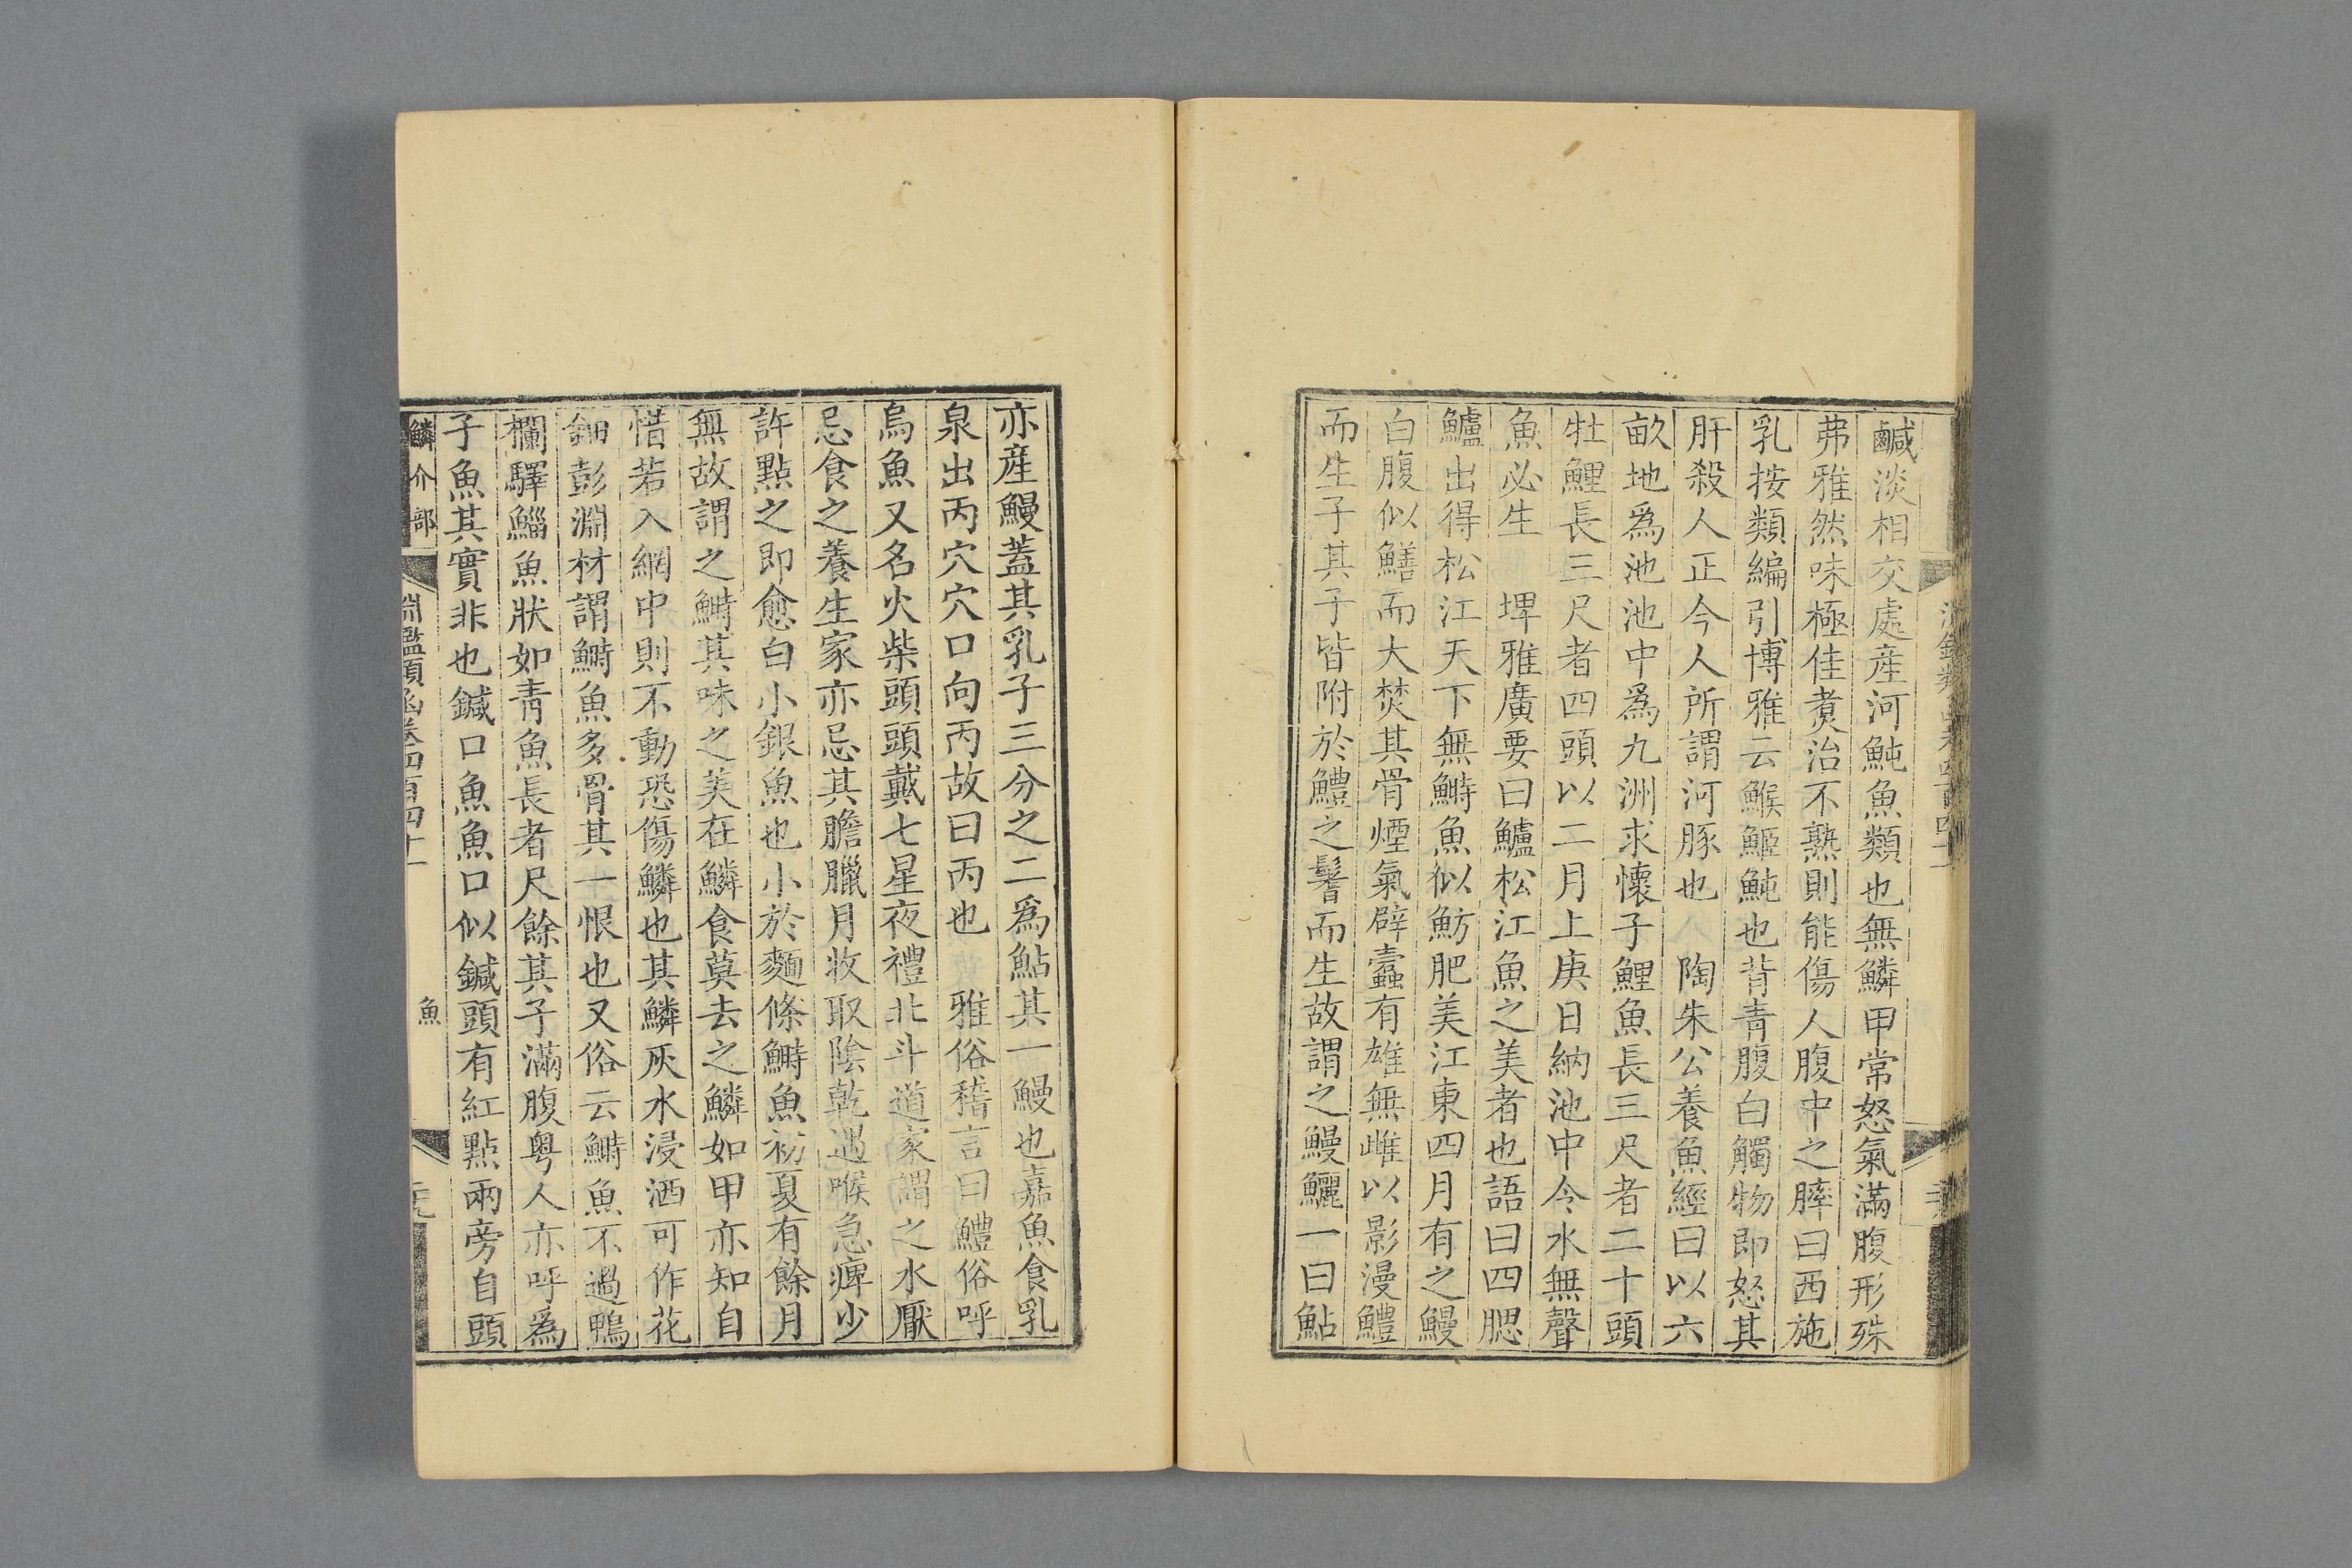 鹹淡相交處産河魨魚類也無鱗甲常怒氣滿腹形殊
弗雅然味極佳煑治不熟則能傷人腹中之膟曰西施
乳按類編引博雅云鯸䱌魨也背青腹白觸物即怒其
肝殺人正今人所謂河豚也 陶朱公養魚經曰以六
畝地爲池池中爲九洲求懷子鯉魚長三尺者二十頭
牡鯉長三尺者四頭以二月上庚日納池中令水無聲
魚必生 埤雅廣要曰鱸松江魚之美者也語曰四腮
鱸出得松江天下無鰣魚似魴肥美江東四月有之鰻
白腹似鱔而大焚其骨煙氣辟蠹有雄無雌以影漫鱧
而生子其子皆附於鱧之鬐而生故謂之鰻鱺一曰鮎
亦産鰻蓋其乳子三分之二爲鮎其一鰻也嘉魚食乳
泉出丙穴穴口向丙故曰丙也 雅俗稽言曰鱧俗呼
烏魚又名火柴頭頭戴七星夜禮北斗道家謂之水厭
忌食之養生家亦忌其膽臘月收取陰乾遇喉急痺少
許點之即愈白小銀魚也小於麵條鰣魚初夏有餘月
無故謂之鰣其味之美在鱗食莫去之鱗如甲亦知自
惜若入網中則不動恐傷鱗也其鱗灰水浸洒可作花
鈿彭淵材謂鰣魚多骨其一恨也又俗云鰣魚不過鴨
欄驛鯔魚狀如青魚長者尺餘其子滿腹粤人亦呼爲
子魚其實非也鍼口魚魚口似鍼頭有紅點兩旁自頭
鱗介部
淵鑑類函卷四百四十一
魚